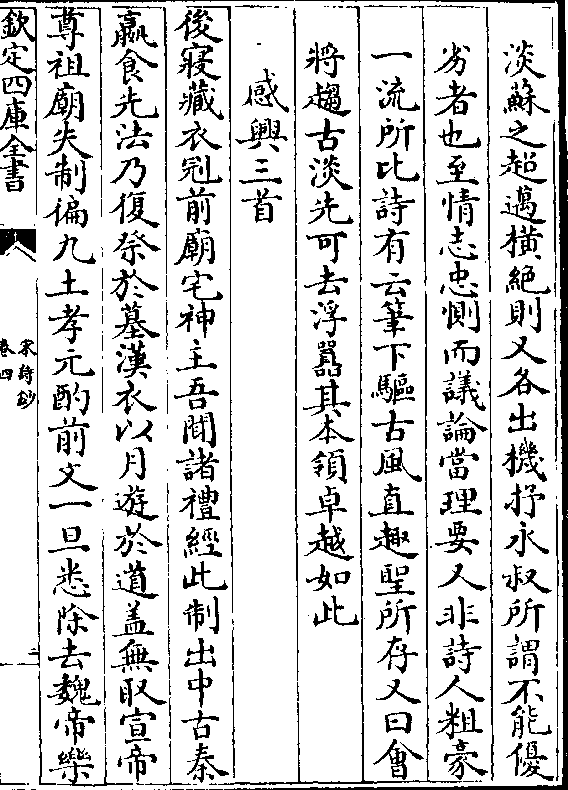 淡蘇之超邁橫絕則又各出機抒永叔所謂不能優
劣者也至情志忠惻而議論當理要又非詩人粗豪
一流所比詩有云筆下驅古風直趣聖所存又曰會
將趨古淡先可去浮囂其本領卓越如此
感興三首
後寢藏衣冠前廟宅神主吾聞諸禮經此制出中古秦
嬴食先法乃復祭於墓漢衣以月遊於道盖無取宣帝
尊祖廟失制徧九土孝元酌前文一旦悉除去魏帝樂
欽定四庫全書
宋詩鈔
卷四
二